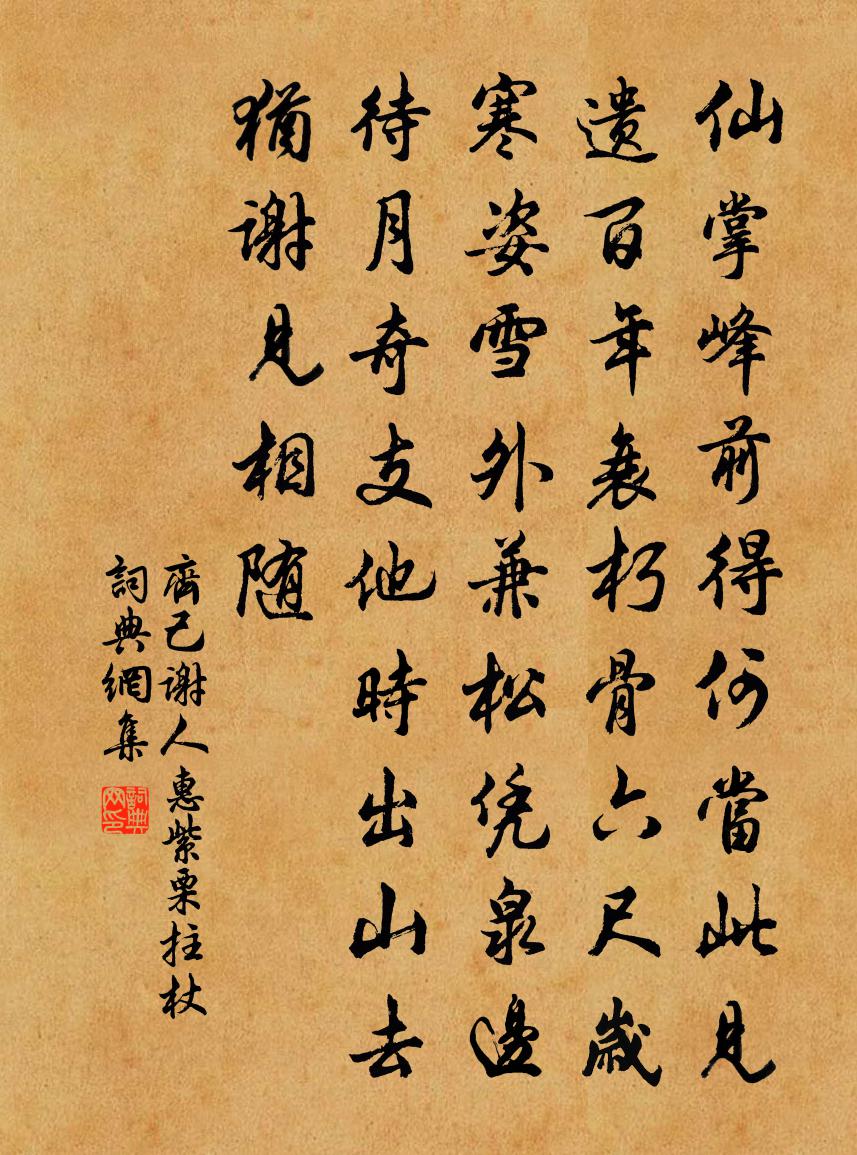 仙掌峰前得何當此見
遺百年衰朽骨六尺歲
寒姿雪外兼松凭泉邊
待月奇支他時出山去
猶謝見相随
齊己谢人惠紫栗拄杖
詞典網集
詞典网印